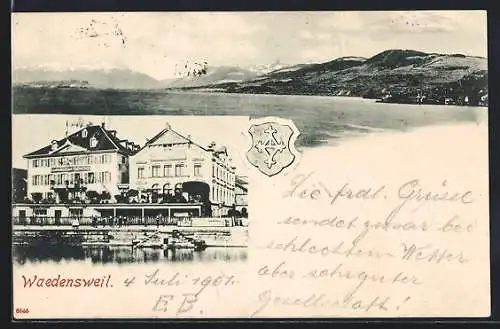 Die frdl. Grüsse
sendet zwar bei
schlechtem Wetter
aber sehr guter
Gesellschaft!
Waedensweil. 4 Juli 1901.
E B.